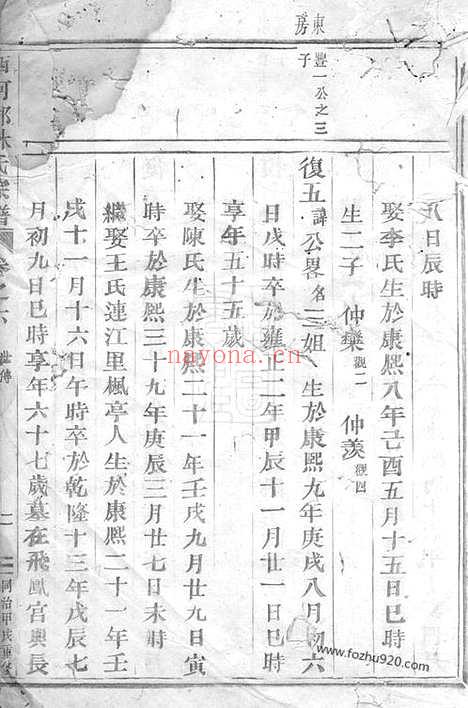 東房
豐一公之三子
八日辰時
娶李氏生於康熙八年己酉五月十五日巳時
生二子 仲欒 觀二 仲羨 觀四
復五 諱公畧名三姐 生於康熙九年庚戌八月初六
日戌時卒於雍正二年甲辰十一月廿一日巳時
享年五十五歲
娶陳氏生於康熙二十一年壬戌九月廿九日寅
時卒於康熙三十九年庚辰三月廿七日未時
繼娶王氏連江里楓亭人生於康熙二十一年壬
戌十一月十六日午時卒於乾隆十三年戊辰七
月初九日巳時享年六十七歲墓在飛鳳宮與長
西河郡林氏宗譜 卷之六 世傳 二 同治甲戌重修
nayona.cn
www.fozhu920.com